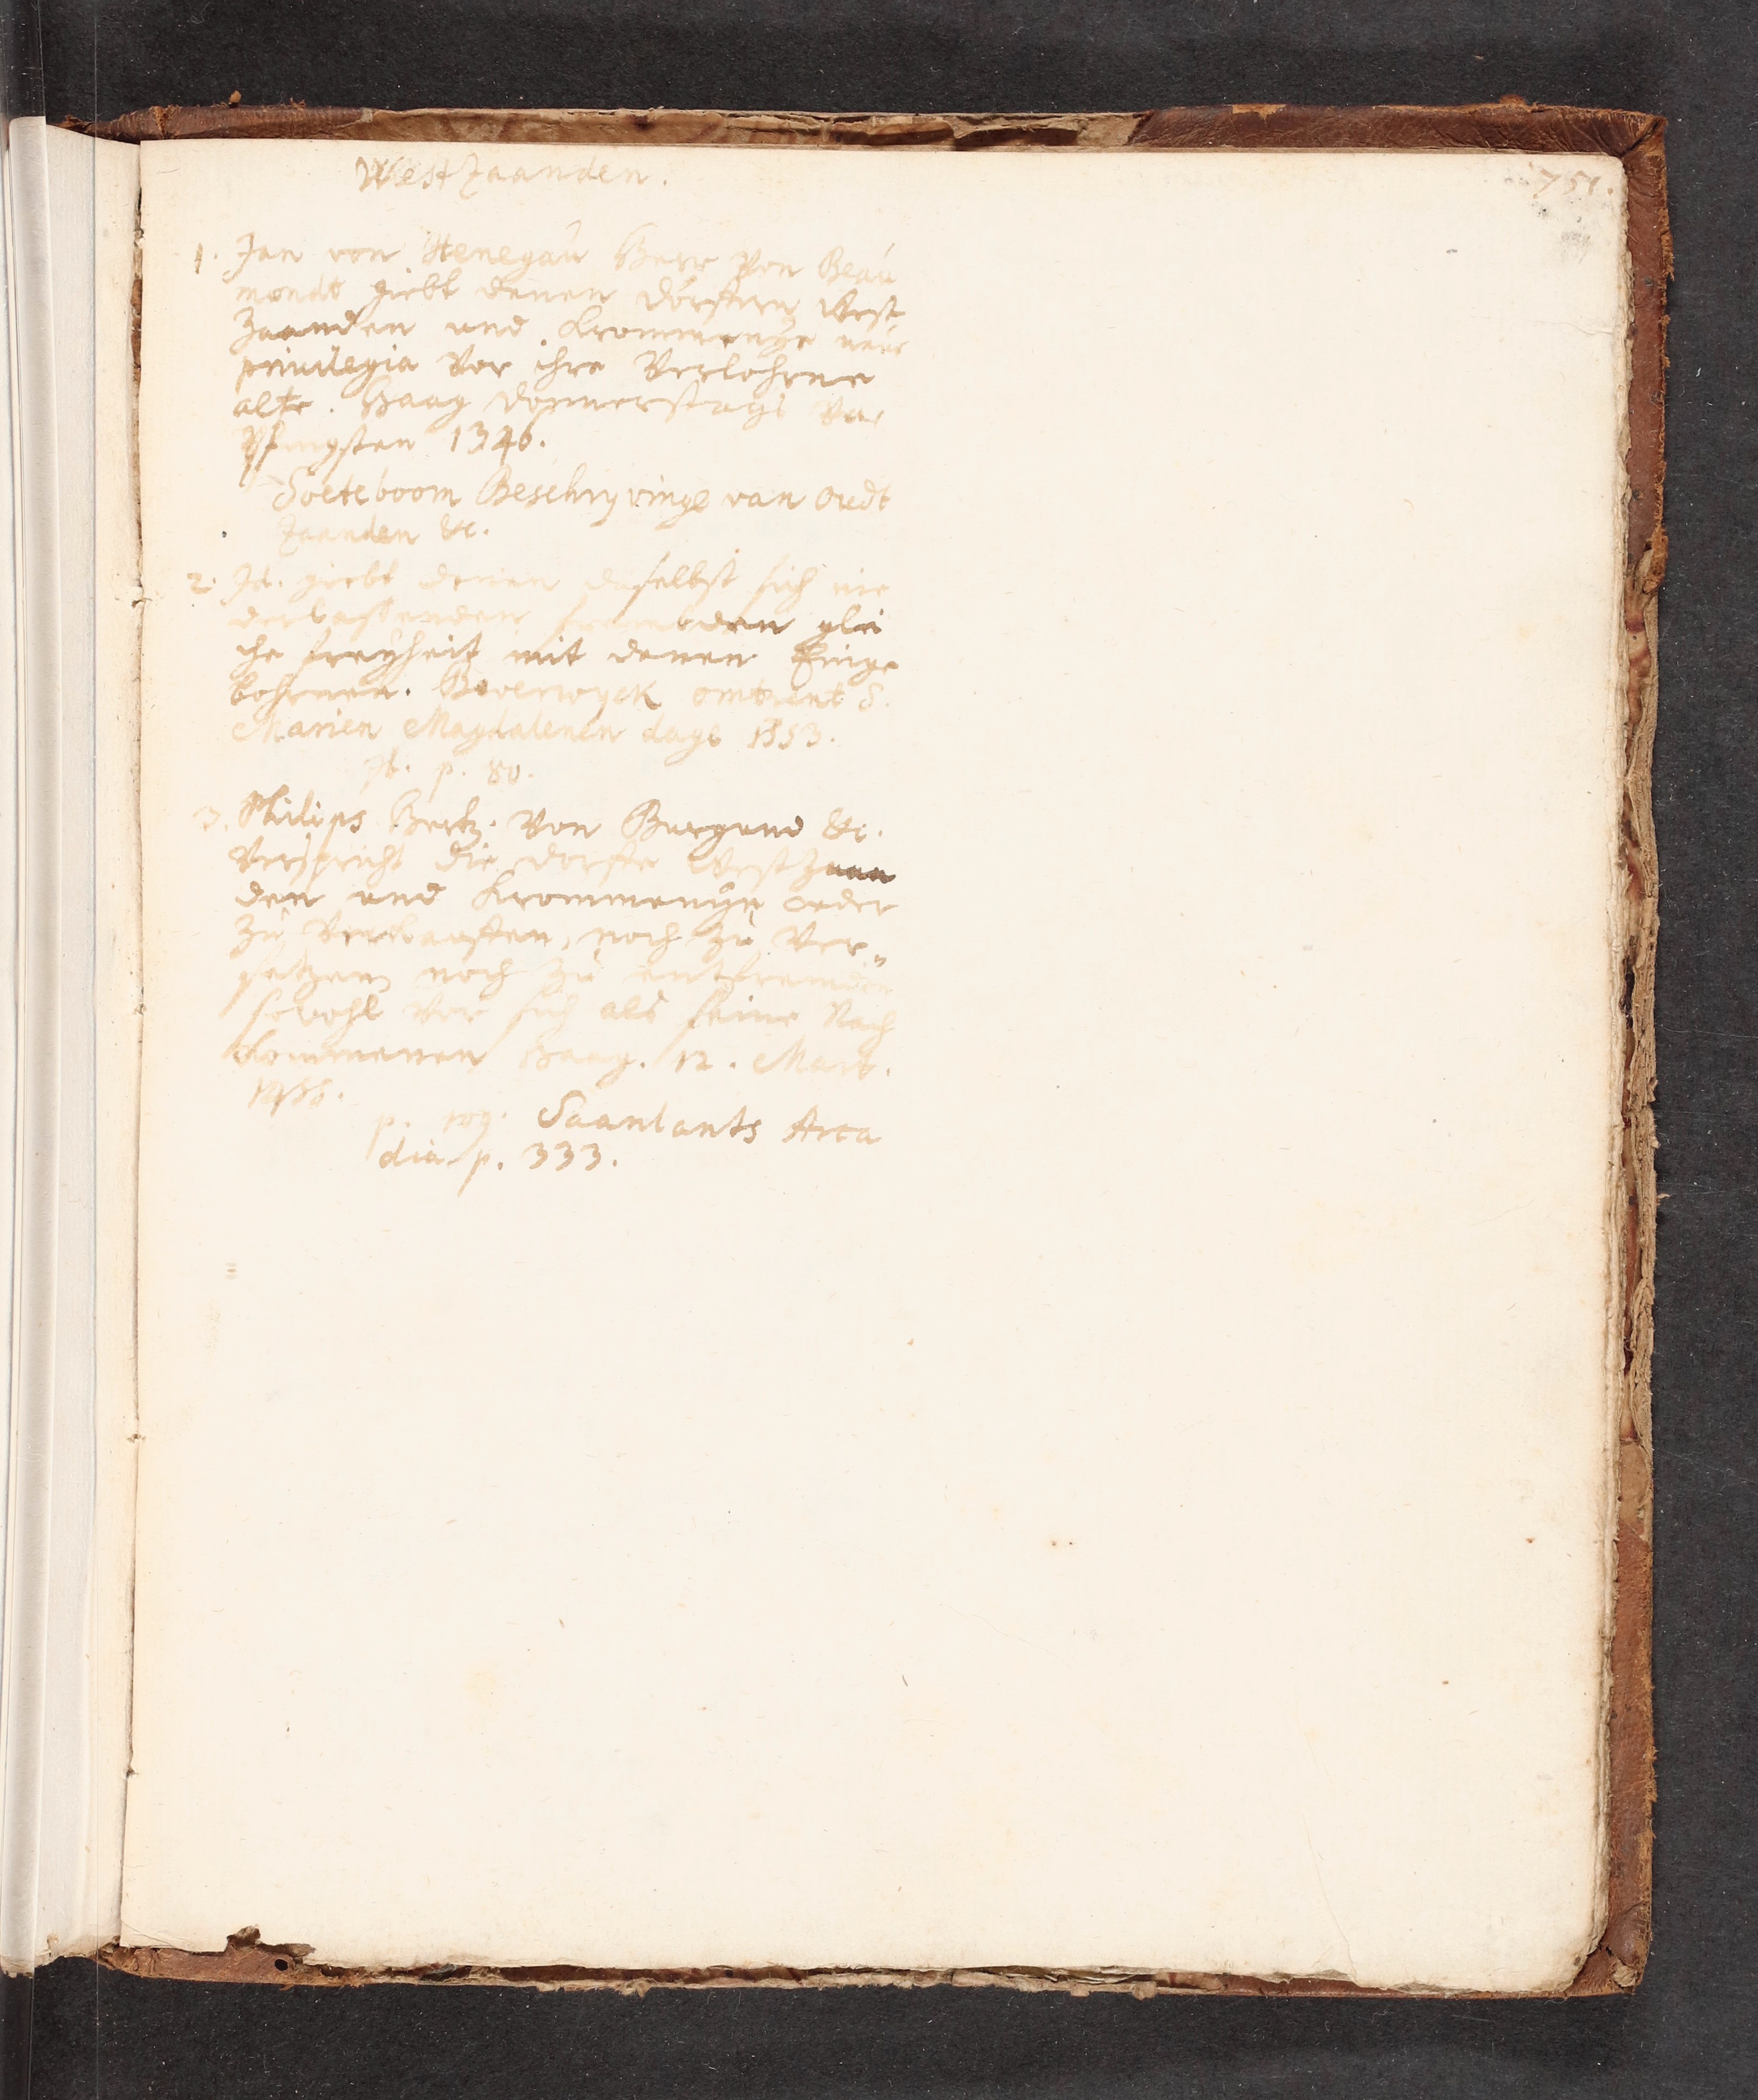 West Zaanden.
751.
1. Jan von Henegau Herr von Beau
mondt giebt denen Dörffern West
Zaanden und Krommenye neue
privilegia vor ihre verlohrne
alte. Haag Donnerstags vor
Pfingsten 1346.
Soeteboom Beschryvinge van Oudt
Zaanden &c.
2. Id. giebt denen daselbst sich nie
derlassenden frembden glei
che freyheit mit denen Einge
bohrnen. Beverwyck omtrent S.
Marien Magdalenen dage 1353.
Ib. p. 80.
3. Philips Hertz. von Burgund &c.
verspricht die Dorffe Westzaan
den und Krommenye oeder
zu verkauffen, noch zu ver„
setzen noch zu entfremden
sowohl vor sich als seine Nach
kommenen Haag. 12. Mart.
p. 109. Saanlants Arca
dia p. 333.